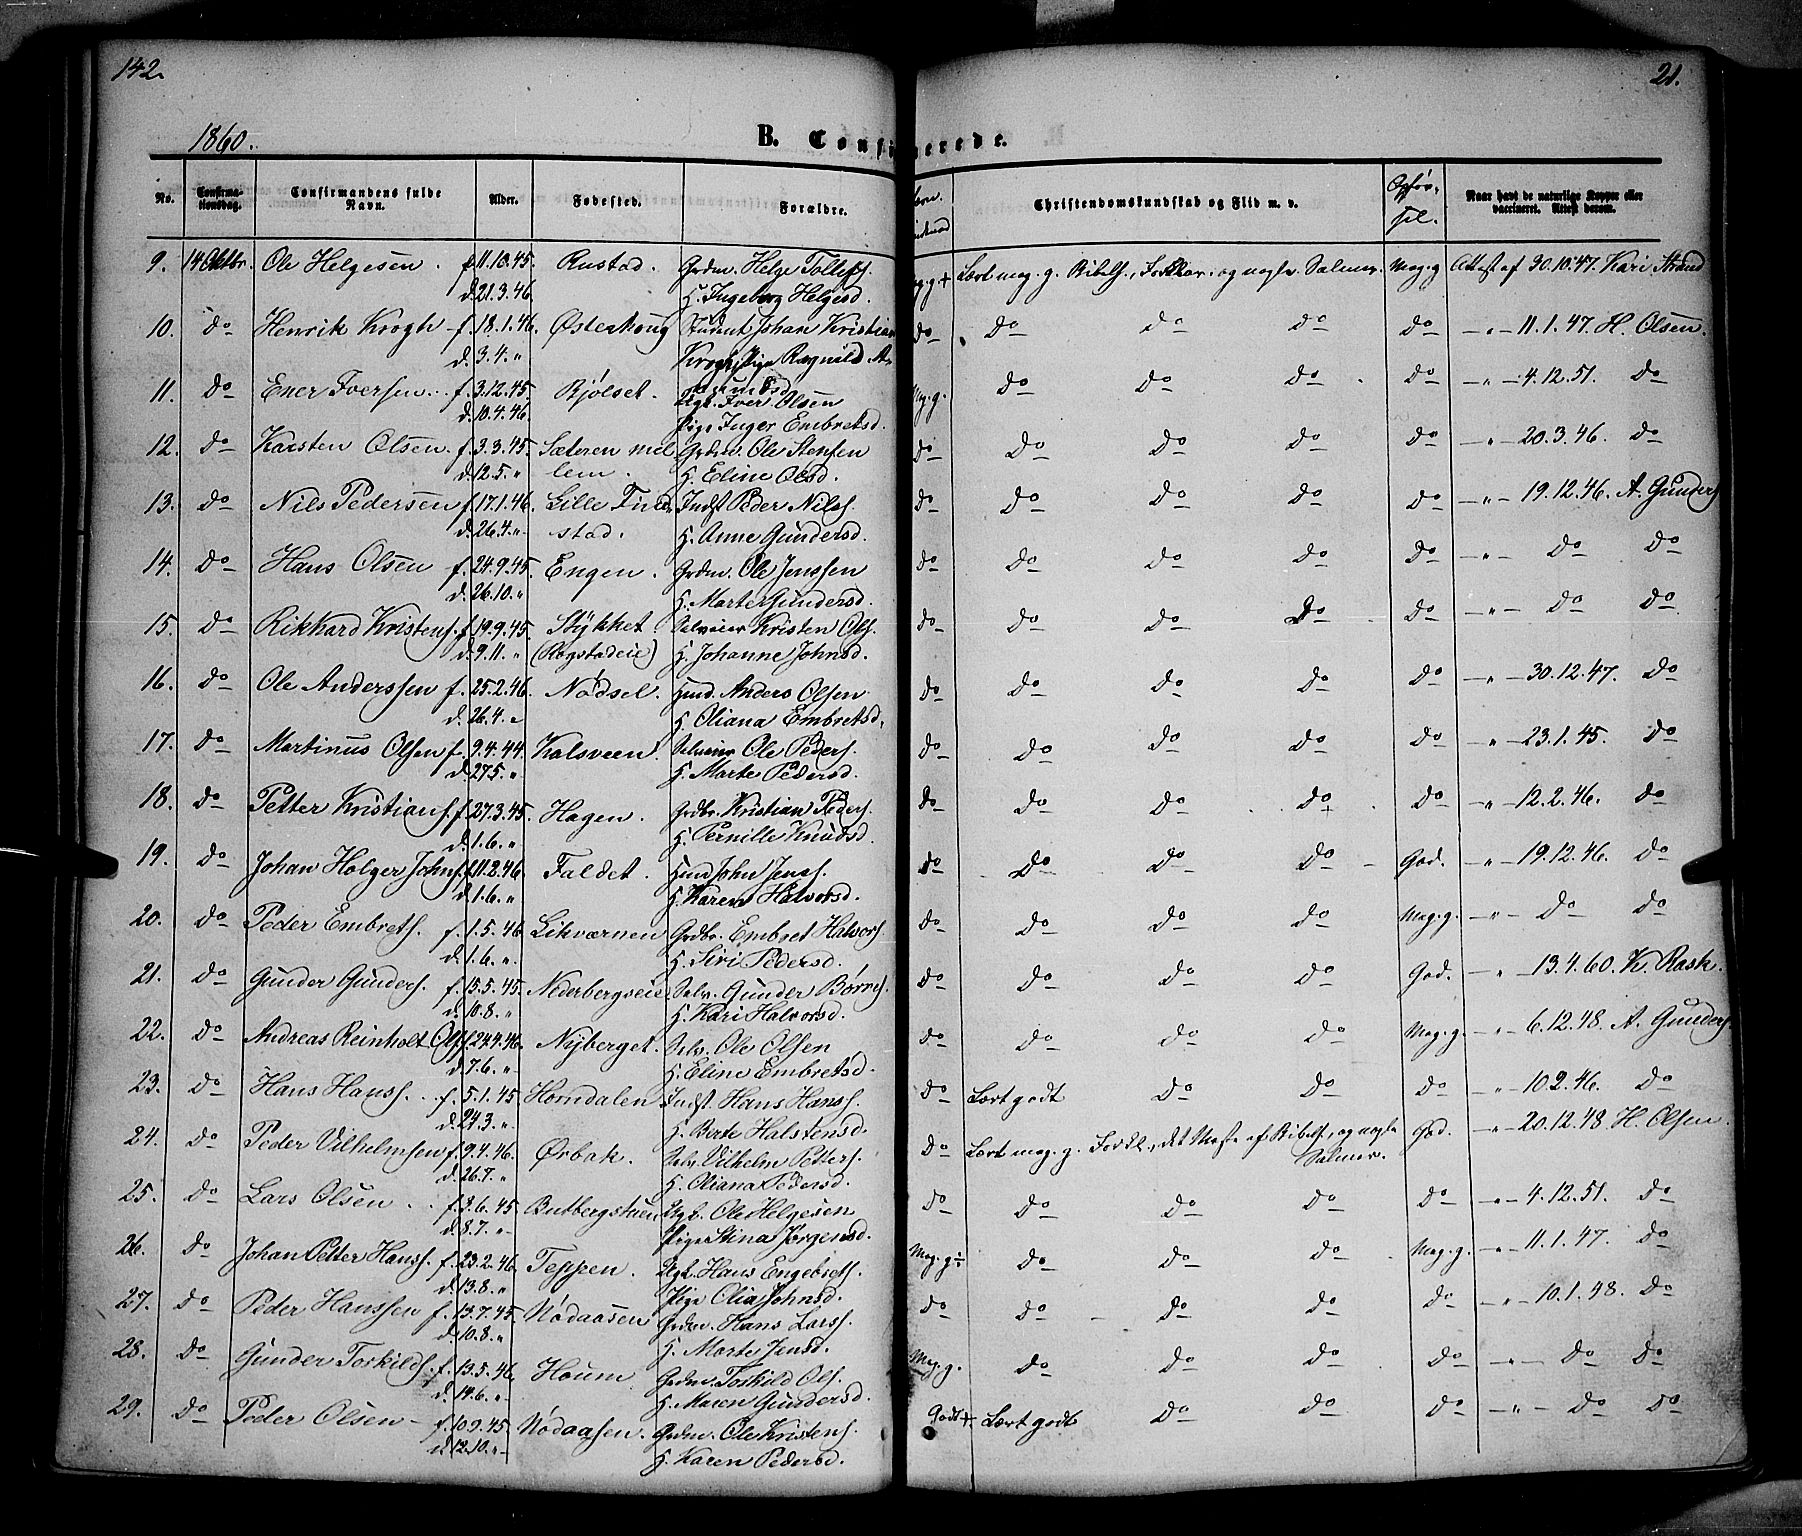 142.
21.
1860.
B. Confi erede.
No.
Confirma-
tionsdag.
Confirmandens fulde
Navn.
Alder.
Fødested.
Forældre.
Christendomskundskab og Flid m. v.
Opfør-
sel.
Naar havt de naturlige Kopper eller
vaccineret. Attest derom.
9. 14 Oktbr. Ole Helgesen. f. 11.10.45. Rustad. Grdm. Helge Tollefs. g+ Lært meg. g. Bibelh., Forklar. og nogle Salmer. Meg. g Attest af 30.10.47. Kari Strand
d. 21.3.46. H. Ingeborg Helgesd.
10. do Henrik Krogh f. 18.1.46. Østerhoug Student Johan Kristian do do do do do — " — 11.1.47. H. Olsen.
d. 3.4. " Krogh, Pige Ragnild A-
11. do Ener Iversen. f. 3.12.45. Bjølset. Ugk. Iver Olsen Meg. g. do do do do — " — 4.12.51. do
d. 10.4.46. Pige Inger Embretsd.
12. do Karsten Olsen. f. 3.3.45. Sæteren mel- Grdm. Ole Stensen do do do do do — " — 20.3.46. do
d. 12.5. " lem. H. Eline Olsd.
13. do Nils Pedersen f. 17.1.46. Lille Findstad. Indst Peder Nilss. do do do do do — " — 19.12.46. A. Gunders
d. 26.4. " H. Anne Gundersd.
14. do Hans Olsen f. 24.9.45. Engen. Grdm. Ole Jenssen do do do do do — " — do do
d. 26.10. " H. Marte Gundersd.
15. do Rikhard Kristens. f. 19.9.45. Stykket Selveier Kristen Ols. do do do do do — " — do do
d. 9.11. " (Rogstadeie) H. Johanne Johnsd.
16. do Ole Anderssen f. 25.2.46. Nødsel. Husd. Anders Olsen do do do do do — " — 30.12.47. do
d. 26.4. " H. Oliana Embretsd.
17. do Martinus Olsen f. 9.4.44. Kalsveen. Selveier Ole Peders. do do do do do — " — 23.1.45. do
d. 27.5. " H. Marte Pedersd.
18. do Petter Kristians. f. 27.3.45. Hagen. Grdbr. Kristian Peders. do do do do do — " — 12.2.46. do
d. 1.6. " H. Pernille Knudsd.
19. do Johan Holger Johns. f. 11.2.46. Faldet. Husd John Jenss. do do do do God. — " — 19.12.46. do
d. 1.6. " H. Karen Halvorsd.
20. do Peder Embrets. f. 1.5.46. Likværnen Grdbr. Embret Halvors. do do do do Meg. g. — " — do do
d. 1.6. " H. Siri Pedersd.
21. do Gunder Gunders. f. 15.5.45. Nederbergseie Selv. Gunder Børres. do do do do God. — " — 13.4.60. K. Rask.
d. 10.8. " H. Kari Halvorsd.
22. do Andreas Reinholt Ols. f. 24.4.46. Nyberget. Selv. Ole Olsen do do do do Meg. g. — " — 6.12.48. A. Gunders.
d. 7.6. " H. Eline Embretsd.
23. do Hans Hanss. f. 5.1.45. Horndalen Indst. Hans Hanss. do Lært godt do do do " — 10.2.46. do
d. 24.3. " H. Berte Halstensd.
24. do Peder Vilhelmsen f. 9.4.46. Ørbak. Selv. Vilhelm Petters. do Lært meg. g. Forkl., det Meste af Bibelh., og nogle Salmer. God. — " — 20.12.48 H. Olsen.
d. 26.7. " H. Oliana Pedersd.
25. do Lars Olsen f. 3.6.45 Butbergstuen Ugk. Ole Helgesen do do do do do — " — 4.12.51. do
d. 8.7. " Pige Stina Jørgensd.
26. do Johan Petter Hanss. f. 23.2.46. Teppen. Ugk. Hans Engebrets. Meg. g÷ do do do Meg. g. — " — 11.1.47. do
d. 13.8. " Pige Olia Johnsd.
27. do Peder Hanssen f. 13.7.45. Nodaasen Grdm. Hans Larss. do do do do do — " — 10.1.48. do
d. 10.8. " H. Marte Jensd.
28. do Gunder Toskilds. f. 13.5.46. Houm Grdm. Toskild Ols. Meg. g. do do do do — " — do do
d. 14.6. " H. Maren Gundersd.
29. do Peder Olsen f. 10.9.45. Nodaasen. Grdm. Ole Kristens. Godt+ Lært godt do do do — " — do do
d. 12.10. " H. Karen Pedersd.